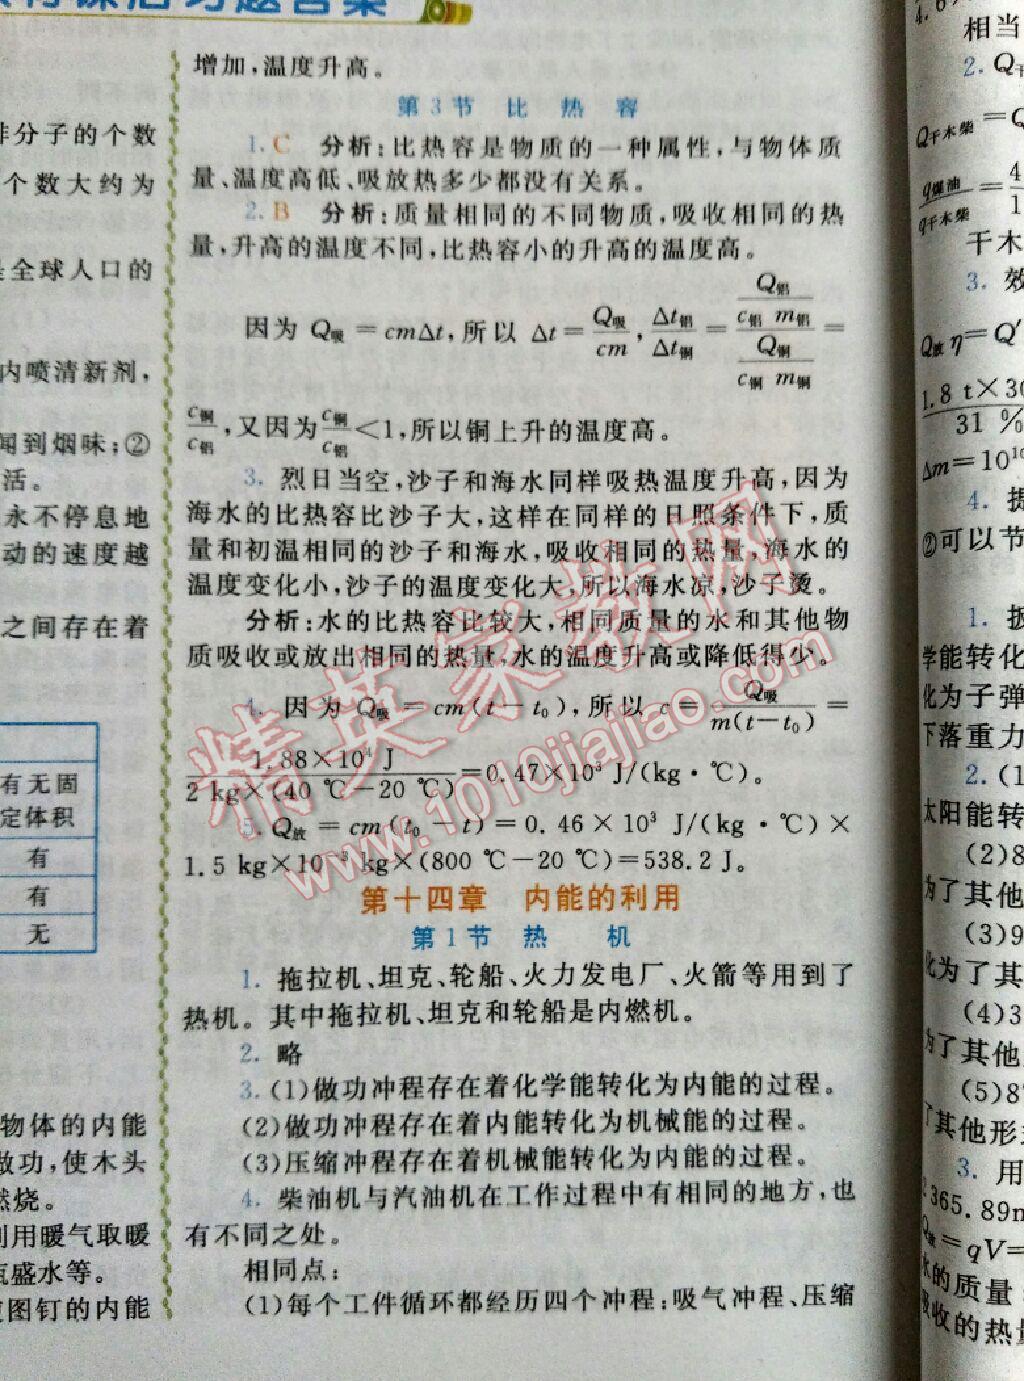 教材课后习题答案
非分子的个数
个数大约为
是全球人口的
内喷清新剂，
闻到烟味；②
活。
永不停息地
动的速度越
之间存在着
有无固
定体积
有
有
无
物体的内能
做功，使木头
燃烧。
利用暖气取暖
瓶盛水等。
图钉的内能
增加，温度升高。
第3节 比 热 容
1.C 分析：比热容是物质的一种属性，与物体质
量、温度高低、吸放热多少都没有关系。
2.B 分析：质量相同的不同物质，吸收相同的热
量，升高的温度不同，比热容小的升高的温度高。
因为 Q吸＝cmΔt，所以 Δt＝Q吸/cm，Δt铝/Δt铜＝(Q铝/(c铝 m铝))/(Q铜/(c铜 m铜))＝
c铜/c铝，又因为c铜/c铝＜1，所以铜上升的温度高。
3. 烈日当空，沙子和海水同样吸热温度升高，因为
海水的比热容比沙子大，这样在同样的日照条件下，质
量和初温相同的沙子和海水，吸收相同的热量，海水的
温度变化小，沙子的温度变化大，所以海水凉，沙子烫。
分析：水的比热容比较大，相同质量的水和其他物
质吸收或放出相同的热量，水的温度升高或降低得少。
4. 因为 Q吸＝cm(t－t₀)，所以 c＝Q吸/m(t－t₀)＝
1.88×10⁴ J/2 kg×(40 ℃－20 ℃)＝0.47×10³ J/(kg·℃)。
5. Q放＝cm(t₀－t)＝0.46×10³ J/(kg·℃)×
1.5 kg×10⁻³ kg×(800 ℃－20 ℃)＝538.2 J。
第十四章 内能的利用
第1节 热 机
1. 拖拉机、坦克、轮船、火力发电厂、火箭等用到了
热机。其中拖拉机、坦克和轮船是内燃机。
2. 略
3. (1)做功冲程存在着化学能转化为内能的过程。
(2)做功冲程存在着内能转化为机械能的过程。
(3)压缩冲程存在着机械能转化为内能的过程。
4. 柴油机与汽油机在工作过程中有相同的地方，也
有不同之处。
相同点：
(1)每个工件循环都经历四个冲程：吸气冲程、压缩
精英家教网
www.1010jiajiao.com
相当
2. Q干
Q干木柴＝Q
q煤油/q干木柴＝4/1
干木
3. 效
Q放 η＝Q′
1.8 t×30
31 %
Δm＝10¹⁰
4. 提
②可以节
1. 扳
学能转化
化为子弹
下落重力
2. (1
太阳能转
(2)8
为了其他
(3)9
化为了其
(4)3
为了其他
(5)8
了其他形
3. 用
365.89m
Q放＝qV＝
水的质量
吸收的热